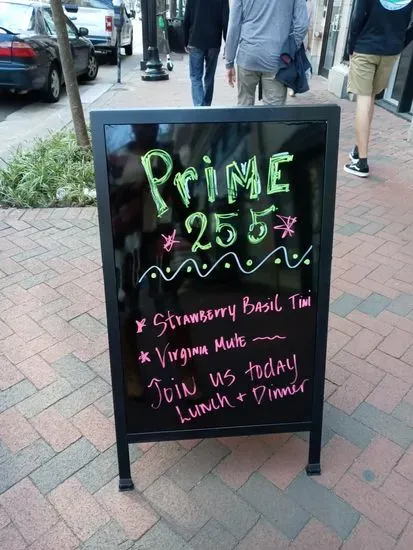 PRiME
255
* STRAWBERRY BASIL TINI
* VIRGINIA MULE
JOIN US today
LUNCH + DINNER